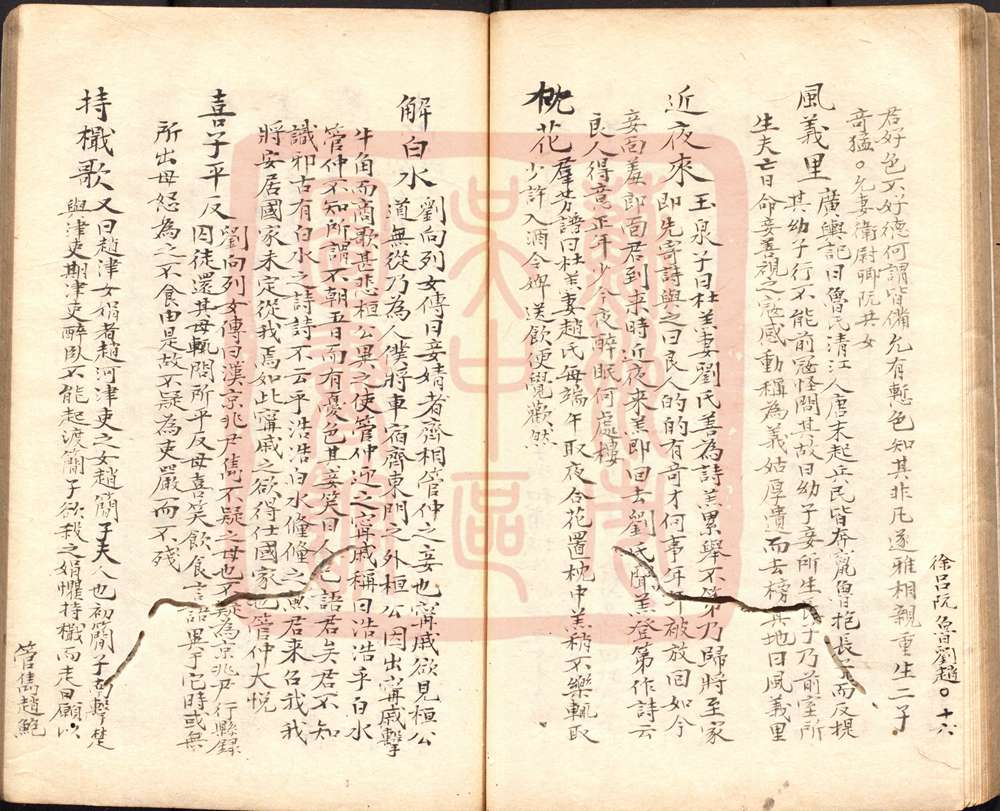 徐呂阮魯劉趙〇十六
君好色不好德何謂皆備允有慙色知其非凡遂雅相親重生二子
奇猛〇允妻衛尉卿阮共女
風義里 廣輿記曰魯氏清江人唐末起兵民皆奔竄魯抱長子而反提
其幼子行不能前寇怪問其故曰幼子妾所生長子乃前室所
生夫亡日命妾善視之寇感動稱為義姑厚遺而去榜其地曰風義里
近夜來 玉泉子曰杜羔妻劉氏善為詩羔累舉不第乃歸將至家
即先寄詩與之曰良人的的有奇才何事年年被放回如今
妾面羞郎面君到來時近夜來羔即回去劉氏聞羔登第作詩云
良人得意正年少今夜醉眠何處樓
枕花 羣芳譜曰杜羔妻趙氏每端午取夜合花置枕中羔稍不樂輒取
少許入酒令婢送飲便覺歡然
解白水 劉向列女傳曰妾婧者齊相管仲之妾也甯戚欲見桓公
道無從乃為人僕將車宿齊東門之外桓公因出甯戚擊
牛角而商歌甚悲桓公異之使管仲迎之甯戚稱曰浩浩乎白水
管仲不知所謂不朝五日而有憂色其妾笑曰人已語君矣君不知
識邪古有白水之詩詩不云乎浩浩白水鯈鯈之魚君來召我我
將安居國家未定從我焉如此甯戚之欲得仕國家也管仲大悅
喜子平反 劉向列女傳曰漢京兆尹雋不疑之母也不疑為京兆尹行縣錄
囚徒還其母輒問所平反母喜笑飲食言語異于它時或無
所出母怒為之不食由是故不疑為吏嚴而不殘
持檝歌 又曰趙津女娟者趙河津吏之女趙簡子夫人也初簡子南擊楚
與津吏期津吏醉臥不能起渡簡子欲殺之娟懼持檝而走曰願以
管雋趙鮑